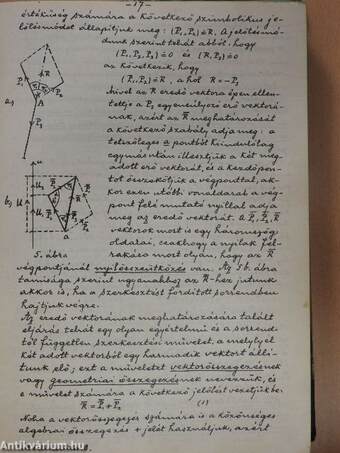 - 17 -
értékűség számára a következő szimbolikus je-
lölésmódot állapítjuk meg: (P₁,P₂) ≡ R. A jelölésmó-
dunk szerint tehát abból, hogy
(P₁,P₂,P₃) ≡ 0 és (R,P₃) ≡ 0
az következik, hogy
(P₁,P₂) ≡ R, a hol R = -P₃
Mivel az R eredő vektora épen ellen-
tettje a P₃ egyensúlyozó erő vektorá-
nak, azért az R meghatározását
a következő szabály adja meg: a
tetszőleges a pontból kiindulólag
egymásután illesztjük a két meg-
adott erő vektorát, és a kezdőpon-
tot összekötjük a végponttal, ak-
kor ezen utóbbi vonaldarab a vég-
pont felé mutató nyíllal adja
meg az eredő vektorát. a P₁, P₂, R
vektorok most is egy háromszög
oldalai, csakhogy a nyilak fel-
rakása most olyan, hogy az R
a,
P₁
R
P₂
A
P₃
b,
a
5. ábra
végpontjánál nyílösszeütközés van. Az 5.b. ábra
tanúsága szerint ugyanahhoz az R-hez jutunk
akkor is, ha a szerkesztést fordított sorrendben
hajtjuk végre.
Az eredő vektorának meghatározására talált
eljárás tehát egy olyan egyértelmű és a sorrend-
től független szerkesztési művelet, a melylyel
két adott vektorból egy harmadik vektort állí-
tunk elő; ezt a műveletet vektorösszegezésnek
vagy geometriai összegezésnek nevezzük, és
e művelet számára a következő jelölést vezetjük be:
R = P₁ + P₂ (1)
Noha a vektorösszegezés számára is a közönséges
algebrai összegezés + jelét használjuk, azért
antikvarium.hu